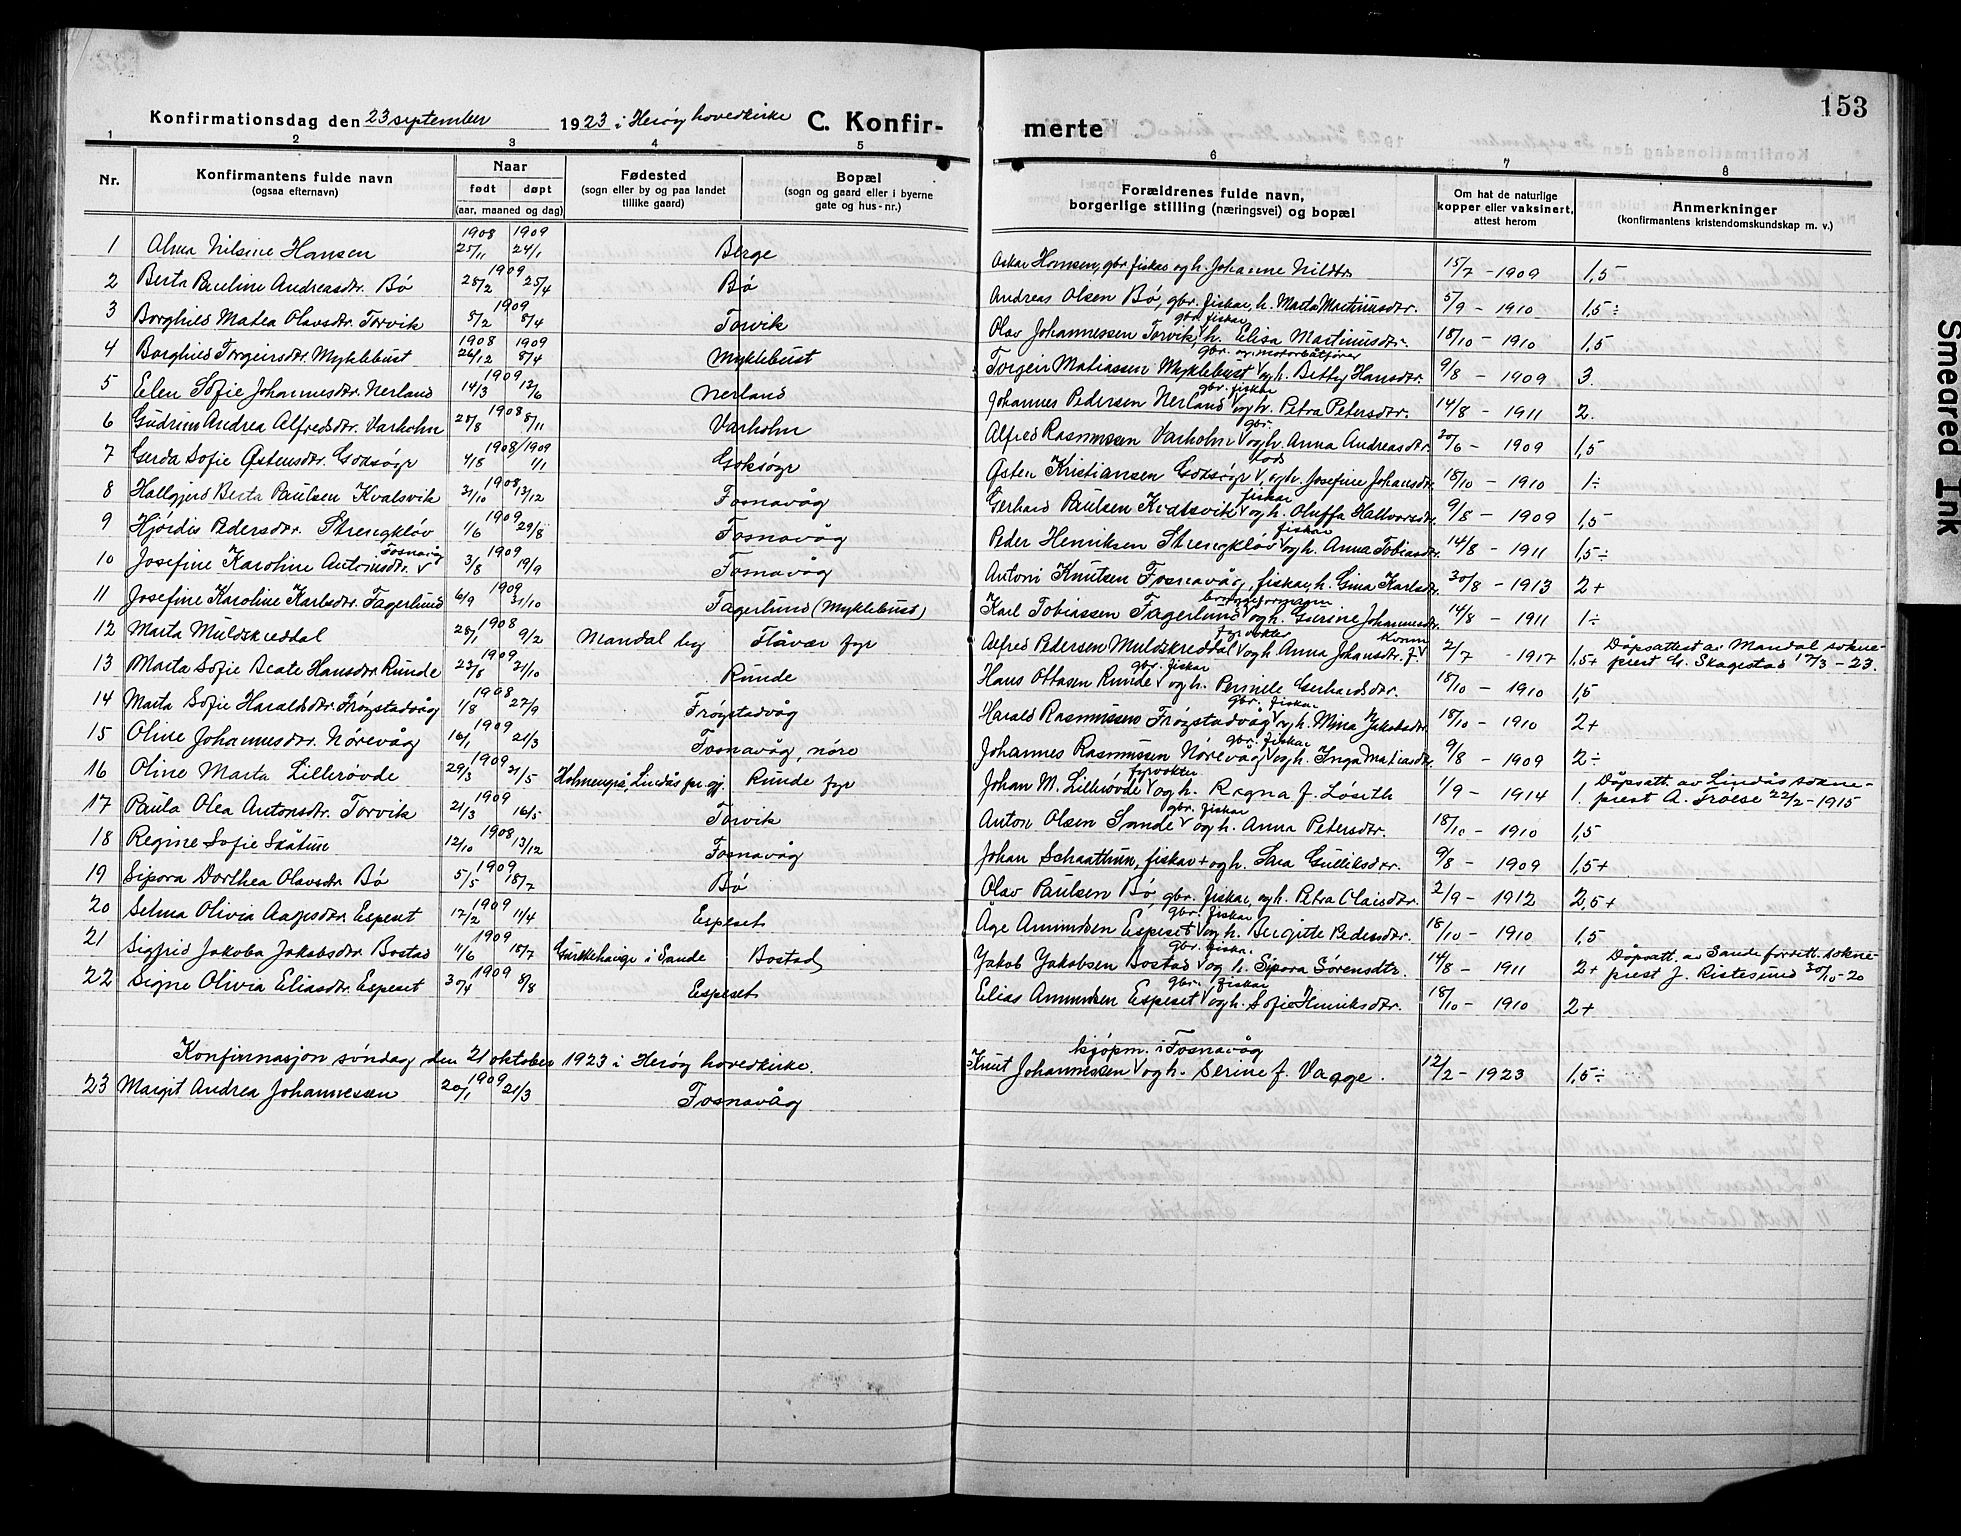 153
Konfirmationsdag den 23 september 1923 i Herøy hovedkirke C. Konfirmerte
1 2 3 4 5 6 7 8
Nr.
Konfirmantens fulde navn
(ogsaa efternavn)
Naar
født døpt
(aar, maaned og dag)
Fødested
(sogn eller by og paa landet
tillike gaard)
Bopæl
(sogn og gaard eller i byerne
gate og hus-nr.)
Forældrenes fulde navn,
borgerlige stilling (næringsvei) og bopæl
Om hat de naturlige
kopper eller vaksinert,
attest herom
Anmerkninger
(konfirmantens kristendomskundskap m. v.)
1 Alma Nilsine Hansen 1908 25/11 1909 24/1 Berge Oskar Hansen, gbr. fiskar og h. Johanne Nilsdtr. 15/7 - 1909 1,5
2 Berta Pauline Andreasdtr. Bø 1909 28/2 25/4 Bø Andreas Olsen Bø, gbr. fiskar, h. Marta Martinusdtr. 5/9 - 1910 1,5÷
3 Borghild Matea Olavsdtr. Torvik 1909 5/2 8/4 Torvik Olav Johannessen Torvik, gbr. fiskar h. Elisa Martinusdtr. 18/10 - 1910 1,5
4 Borghild Torgeirsdtr. Myklebust 1908 26/12 1909 8/4 Myklebust Torgeir Matiassen Myklebust gbr. og motorbåtfører og h. Betty Hansdtr. 9/8 - 1909 3.
5 Elen Sofie Johannesdtr. Nerland 1909 14/3 13/6 Nerland Johannes Pedersen Nerland gbr. fiskar og h. Petra Petersdtr. 14/8 - 1911 2.
6 Gudrun Andrea Alfredsdtr. Varholm 1908 27/8 8/11 Varholm Alfred Rasmussen Varholm gbr. og h. Anna Andreasdtr. 20/6 - 1909 1,5
7 Gerda Sofie Østensdtr. Goksøyr 1908/1909 4/8 1/1 Goksøyr Østen Kristiansen Goksøyr, lods og h. Josefine Johansdtr. 18/10 - 1910 1÷
8 Hallgjerd Berta Paulsen Kvalsvik 1908 31/10 13/12 Fosnavåg Gerhard Paulsen Kvalsvik fiskar og h. Oluffa Hallvarsdtr. 9/8 - 1909 1,5
9 Hjørdis Pedersdtr. Strengkløv 1909 1/6 29/8 Fosnavåg Peder Henriksen Strengkløv fiskar og h. Anna Tobiasdtr. 14/8 - 1911 1,5÷
10 Josefine Karoline Antonsdtr. Fosnavåg 1909 3/8 19/9 Fosnavåg Antoni Knutsen Fosnavåg, fiskar, h. Gina Karlsdtr. 30/8 - 1913 2+
11 Josefine Karoline Karlsdtr. Fagerlund 1909 6/9 31/10 Fagerlund (Myklebust) Karl Tobiassen Fagerlund og h. Gurine Johannesdtr. 14/8 - 1911 1÷
12 Marta Muldskreddal 1908 28/1 9/2 Mandal by Flåvær fyr Alfred Pedersen Muldskreddal fyrvokter og h. Anna Johansdtr. f. 2/7 - 1917 1,5+ Dåpsattest av Mandal sokneprest G. Skagestad 17/3-23.
13 Marta Sofie Beate Hansdtr. Runde 1909 23/8 31/10 Runde Hans Ottasen Runde gbr. fiskar og h. Pernele Gerhardsdtr. 18/10 - 1910 1,5
14 Marta Sofie Haraldsdtr. Frøystadvåg 1908 1/8 27/9 Frøystadvåg Harald Rasmussen Frøystadvåg gbr. fiskar og h. Mina Jakobsdtr. 18/10 - 1910 2+
15 Oline Johannesdtr. Nørevåg 1909 16/1 21/3 Fosnavåg, nøre Johannes Rasmussen Nørevåg gbr. fiskar og h. Inga Matiasdtr. 9/8 - 1909 2÷
16 Oline Marta Lillerøvde 1909 29/3 31/5 Holmengrå, Lindås pr.gj. Runde fyr Johan M. Lillerøvde fyrvokter og h. Ragna f. Løseth 1/9 - 1914 1. Dåpsatt. av Lindås sokneprest A. Froese 22/2-1915
17 Paula Olea Antonsdtr. Torvik 1909 21/3 16/5 Torvik Anton Olsen Sande gbr. fiskar og h. Anna Petersdtr. 18/10 - 1910 1,5
18 Regine Sofie Skåtun 1908 12/10 13/12 Fosnavåg Johan Schaathun, fiskar + og h. Sara Gulliksdtr. 9/8 - 1909 1,5+
19 Sipora Dorthea Olavsdtr. Bø 1909 5/5 18/7 Bø Olav Paulsen Bø, gbr. fiskar, og h. Petra Olaisdtr. 2/9 - 1912 2,5+
20 Selma Olivia Aagesdtr. Espeset 1909 17/2 11/4 Espeset Åge Amundsen Espeset gbr. fiskar og h. Bergitte Pedersdtr. 18/10 - 1910 1,5
21 Sigfrid Jakoba Jakobsdtr. Bostad 1909 11/6 18/7 Gurskehauge i Sande Bostad Jakob Jakobsen Bostad gbr. fiskar og h. Sipora Sørensdtr. 14/8 - 1911 2+ Dåpsatt. av Sande forrett. sokneprest J. Ristesund 30/10-20
22 Signe Olivia Eliasdtr. Espeset 1909 30/4 8/8 Espeset Elias Amundsen Espeset gbr. fiskar og h. Sofie Henriksdtr. 18/10 - 1910 2+
Konfirmasjon søndag den 21 oktober 1923 i Herøy hovedkirke.
23 Margit Andrea Johannessen 1909 20/1 21/3 Fosnavåg Knut Johannessen kjøpm. i Fosnavåg og h. Serine f. Vagge. 12/2 - 1923 1,5÷
Smeared Ink